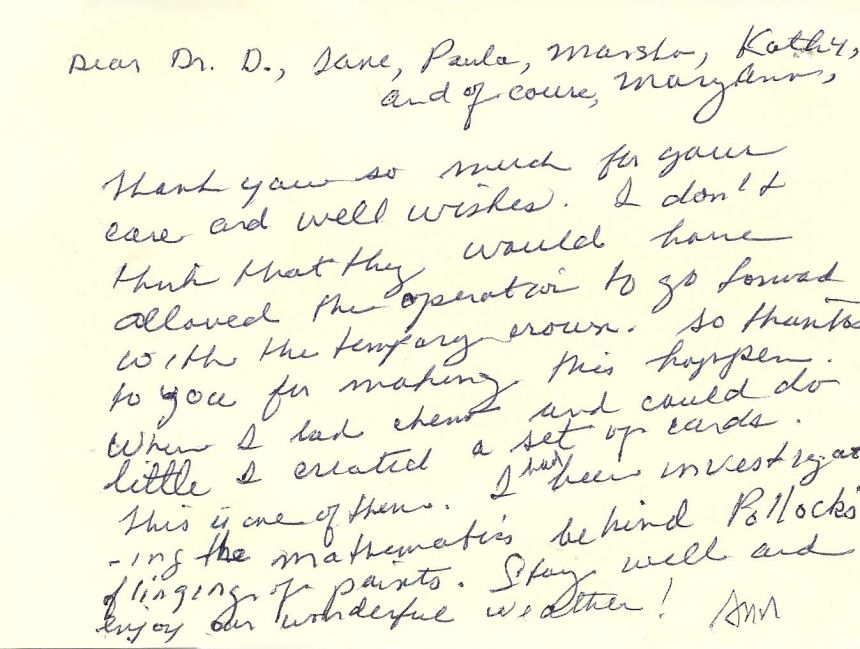 Dear Dr. D., Jane, Paula, Marsha, Kathy,
and of course, Maryann,
Thank you so much for your
care and well wishes. I don't
think that they would have
allowed the operation to go forward
with the temporary crown. So thanks
to you for making this happen.
When I had chemo and could do
little I created a set of cards.
This is one of them. I had been investigat
-ing the mathematics behind Pollock's
flinging of paints. Stay well and
enjoy our wonderful weather! Ann